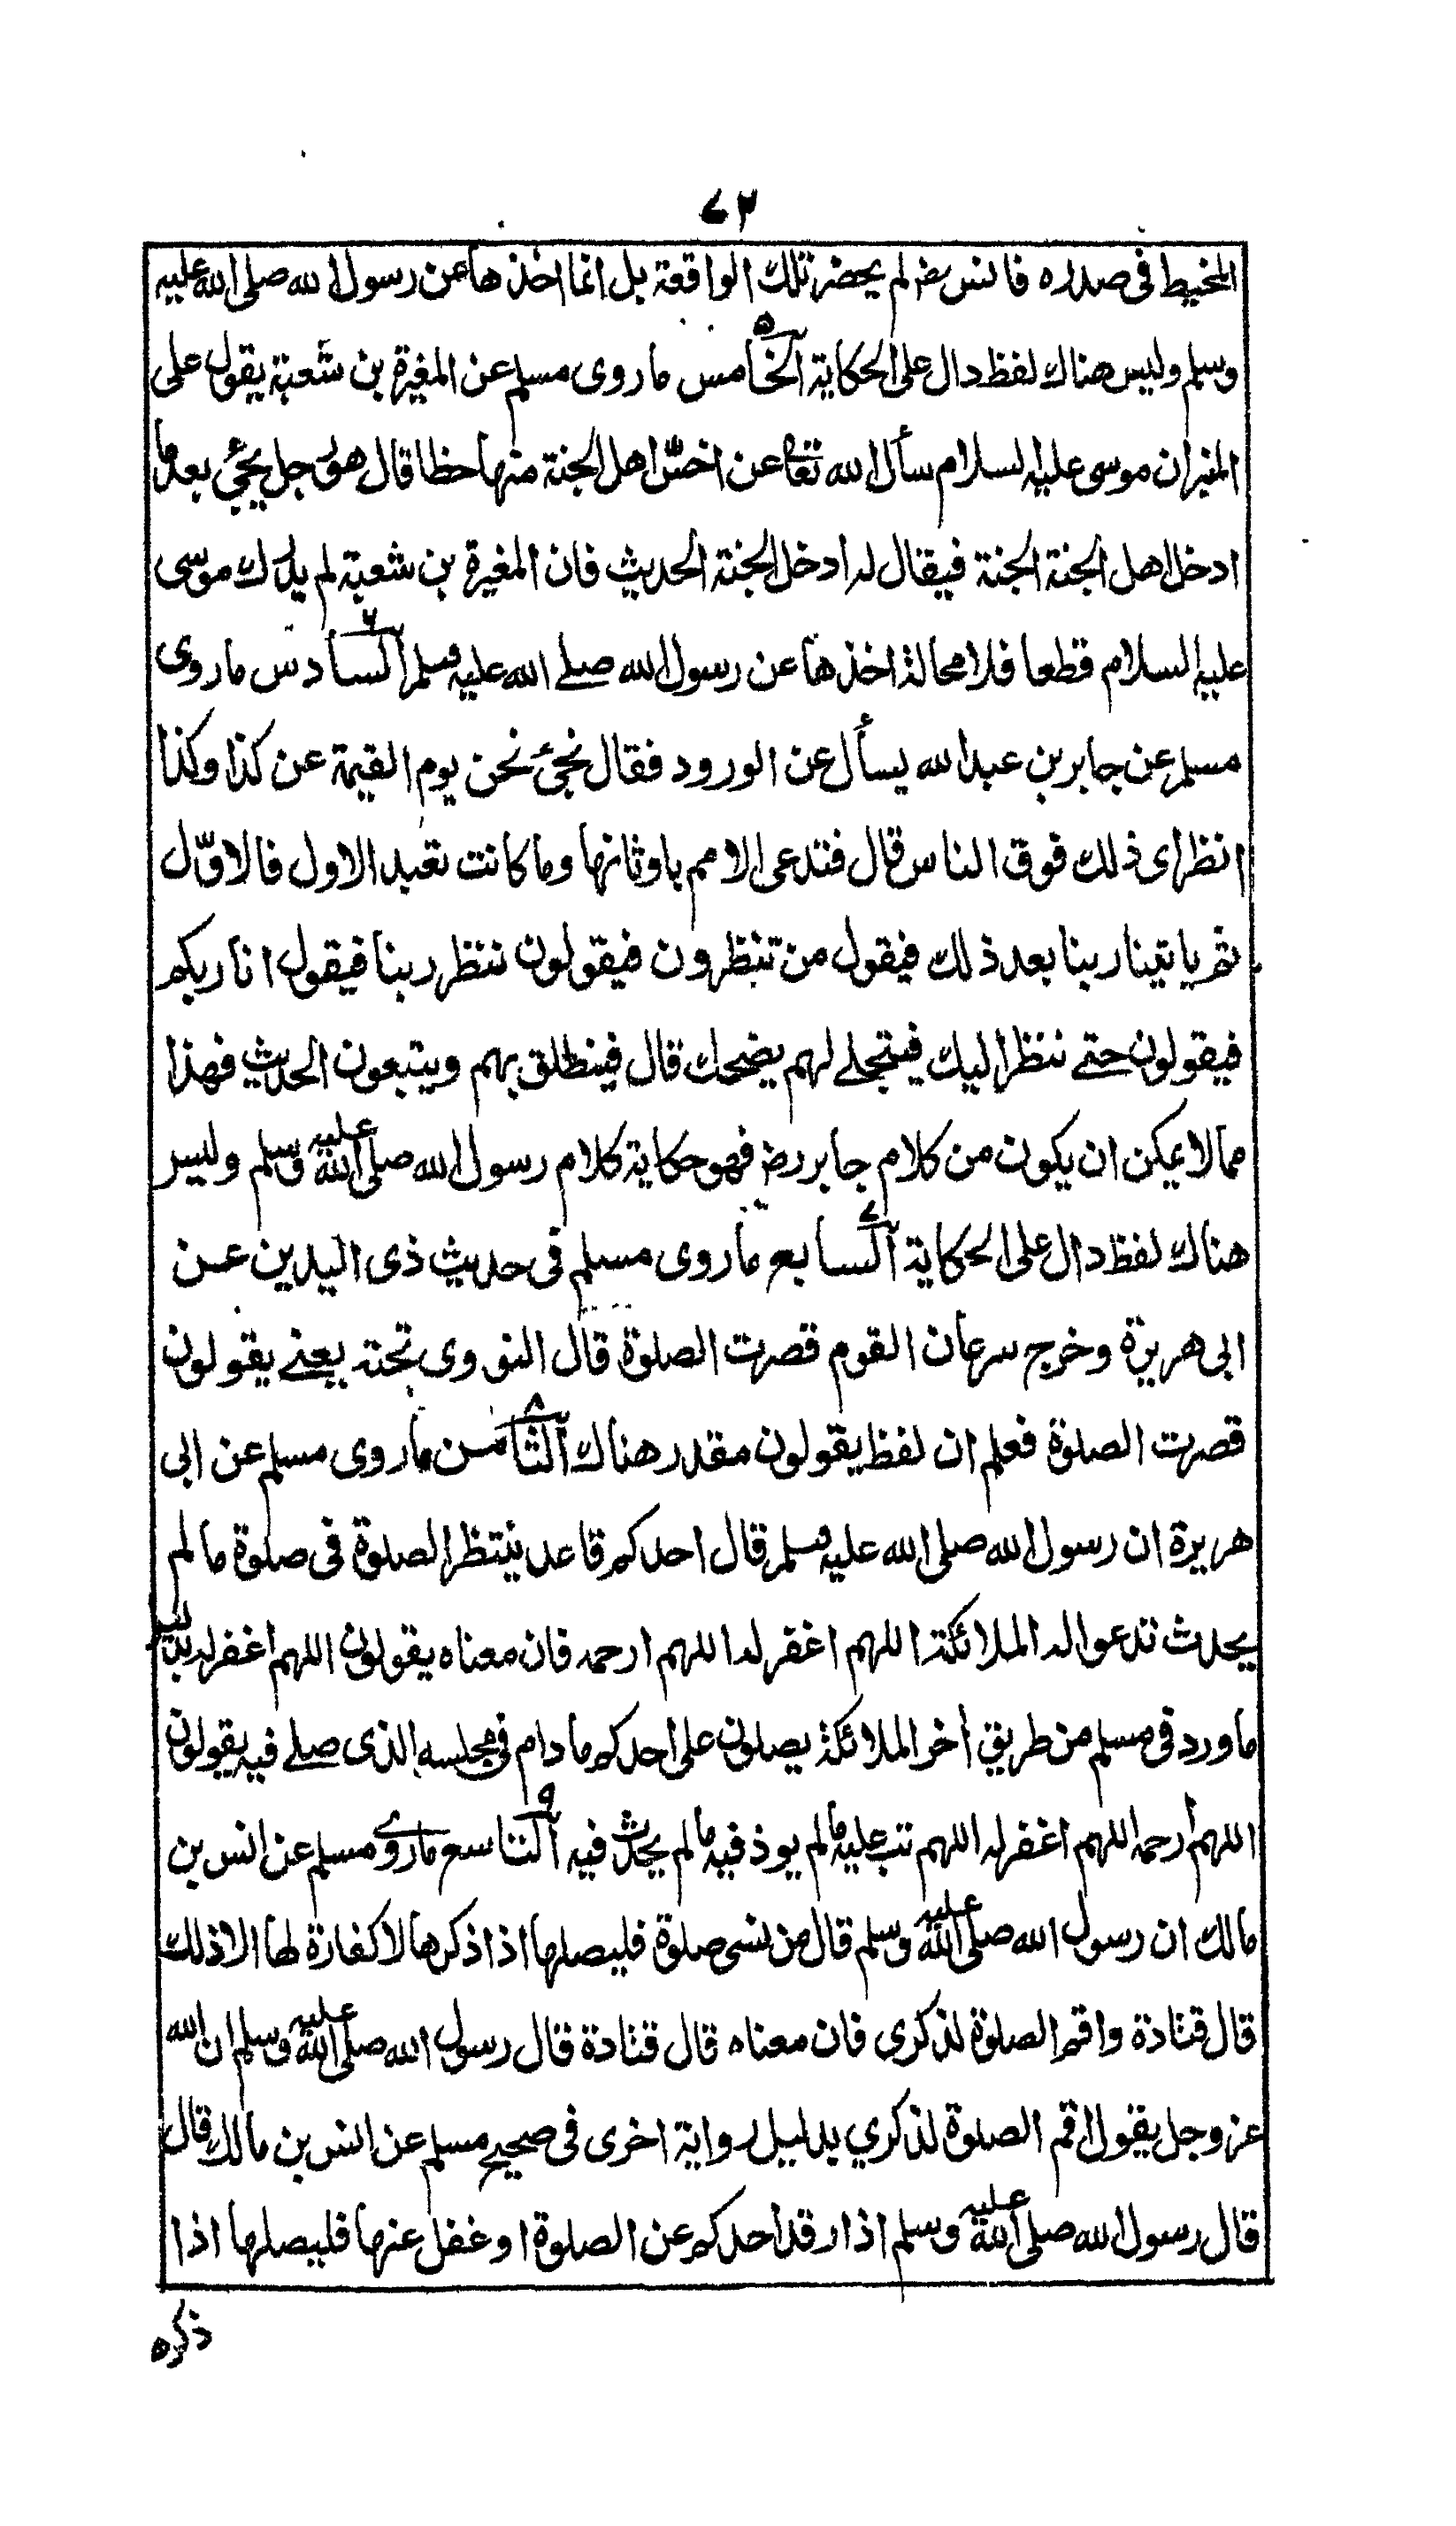 ٧٢
المخيط فى صدره فانس رض لم يحضر تلك الواقعة بل انما اخذها عن رسول الله صلى الله عليه
وسلم وليس هناك لفظ دال على الحكاية الخامس ما روى مسلم عن المغيرة بن شعبة يقول على
المنبر ان موسى عليه السلام سأل الله تعا عن اخسّ اهل الجنة منها حظا قال هو رجل يجئ بعد ما
ادخل اهل الجنة الجنة فيقال له ادخل الجنة الحديث فان المغيرة بن شعبة لم يدرك موسى
عليه السلام قطعا فلا محالة اخذها عن رسول الله صلے الله عليه وسلم السادس ما روى
مسلم عن جابر بن عبد الله يسأل عن الورود فقال نجئ نحن يوم القيمة عن كذا وكذا
انظر اى ذلك فوق الناس قال فتدعى الامم باوثانها وما كانت تعبد الاول فالاوّل
ثم ياتينا ربنا بعد ذلك فيقول من تنظرون فيقولون ننتظر ربنا فيقول انا ربكم
فيقولون حتے ننظر اليك فيتجلے لهم يضحك قال فينطلق بهم ويتبعون الحديث فهذا
مما لا يمكن ان يكون من كلام جابر رض فهو حكاية كلام رسول الله صلى الله عليه وسلم وليس
هناك لفظ دال على الحكاية السابع ما روى مسلم فى حديث ذى اليدين عن
ابى هريرة وخرج سرعان القوم قصرت الصلوة قال النووى تحته يعنے يقولون
قصرت الصلوة فعلم ان لفظ يقولون مقدر هناك الثامن ما روى مسلم عن ابى
هريرة ان رسول الله صلى الله عليه وسلم قال احدكم قاعد ينتظر الصلوة فى صلوة ما لم
يحدث تدعوا له الملائكة اللهم اغفر له اللهم ارحمه فان معناه يقولون اللهم اغفر له بدليل
ما ورد فى مسلم من طريق أخر الملائكة يصلون على احدكم ما دام فى مجلسه الذى صلے فيه يقولون
اللهم ارحمه اللهم اغفر له اللهم تب عليه ما لم يوذ فيه ما لم يحدث فيه التاسع ما روے مسلم عن انس بن
مالك ان رسول الله صلى الله عليه وسلم قال من نسى صلوة فليصلها اذا ذكرها لا كفارة لها الا ذلك
قال قتادة واقم الصلوة لذكرى فان معناه قال قتادة قال رسول الله صلى الله عليه وسلم ان الله
عز وجل يقول اقم الصلوة لذكري بدليل رواية اخرى فى صحيح مسلم عن انس بن مالك قال
قال رسول الله صلى الله عليه وسلم اذا رقد احدكم عن الصلوة او غفل عنها فليصلها اذا
ذكره